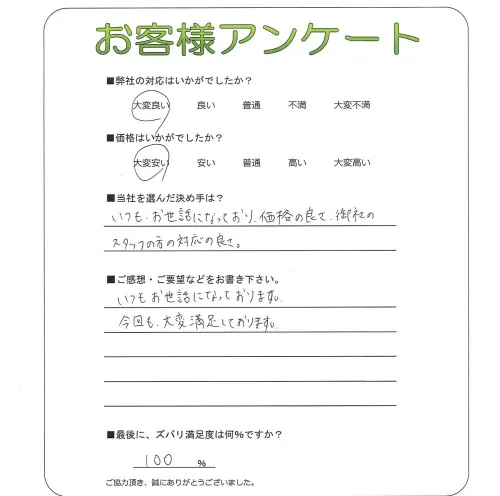 お客様アンケート
■弊社の対応はいかがでしたか?
大変良い 良い 普通 不満 大変不満
■価格はいかがでしたか?
大変安い 安い 普通 高い 大変高い
■当社を選んだ決め手は?
いつも、お世話になっており、価格の良さ、御社の
スタッフの方の対応の良さ。
■ご感想・ご要望などをお書き下さい。
いつもお世話になっております。
今回も、大変満足しております。
■最後に、ズバリ満足度は何%ですか?
100 %
ご協力頂き、誠にありがとうございました。